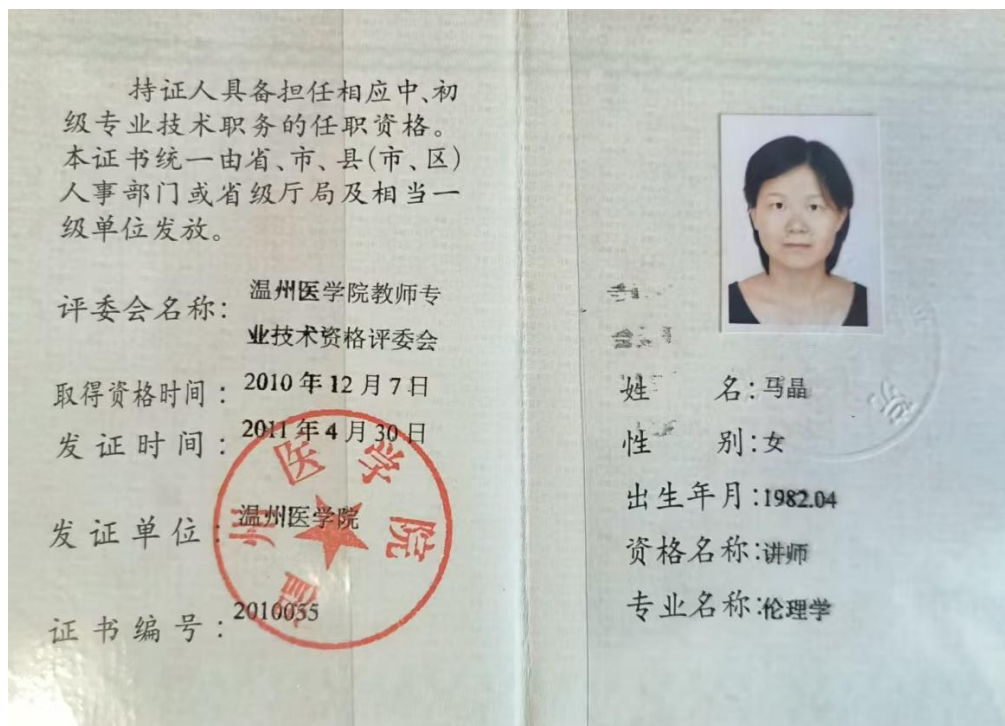 持证人具备担任相应中、初
级专业技术职务的任职资格。
本证书统一由省、市、县(市、区)
人事部门或省级厅局及相当一
级单位发放。
评委会名称:
温州医学院教师专
业技术资格评委会
取得资格时间: 2010年12月7日
发证时间: 2011年4月30日
发证单位: 温州医学院
证书编号: 2010055
温州医学院
姓名:马晶
性别:女
出生年月:1982.04
资格名称:讲师
专业名称:伦理学